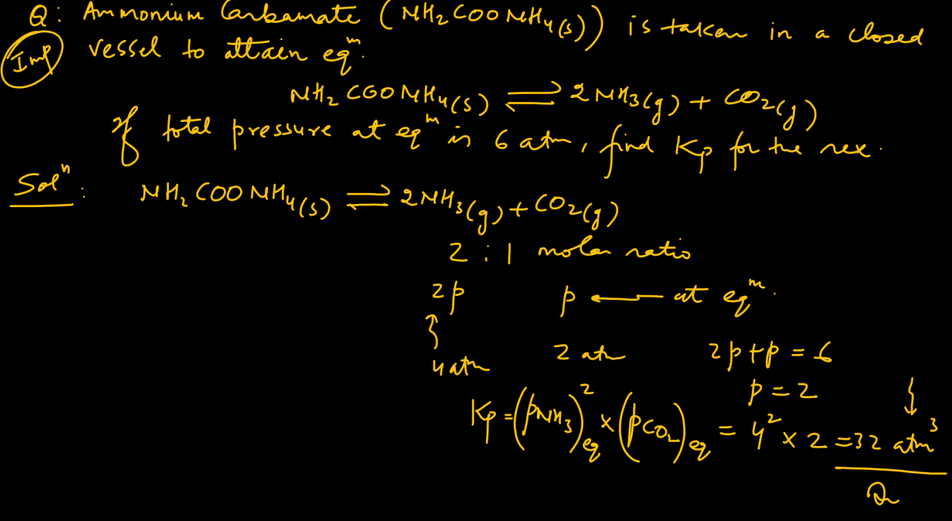 Q: Ammonium Carbamate (NH2COONH4(s)) is taken in a closed
Imp vessel to attain eqm.
NH2COONH4(s) ⇌ 2NH3(g) + CO2(g)
If total pressure at eqm is 6 atm, find Kp for the rex.
Soln: NH2COONH4(s) ⇌ 2NH3(g) + CO2(g)
2 : 1 molar ratio
2p p ← at eqm.
4 atm 2 atm 2p+p = 6
p = 2
Kp = (pNH3)²eq × (pCO2)eq = 4² × 2 = 32 atm³